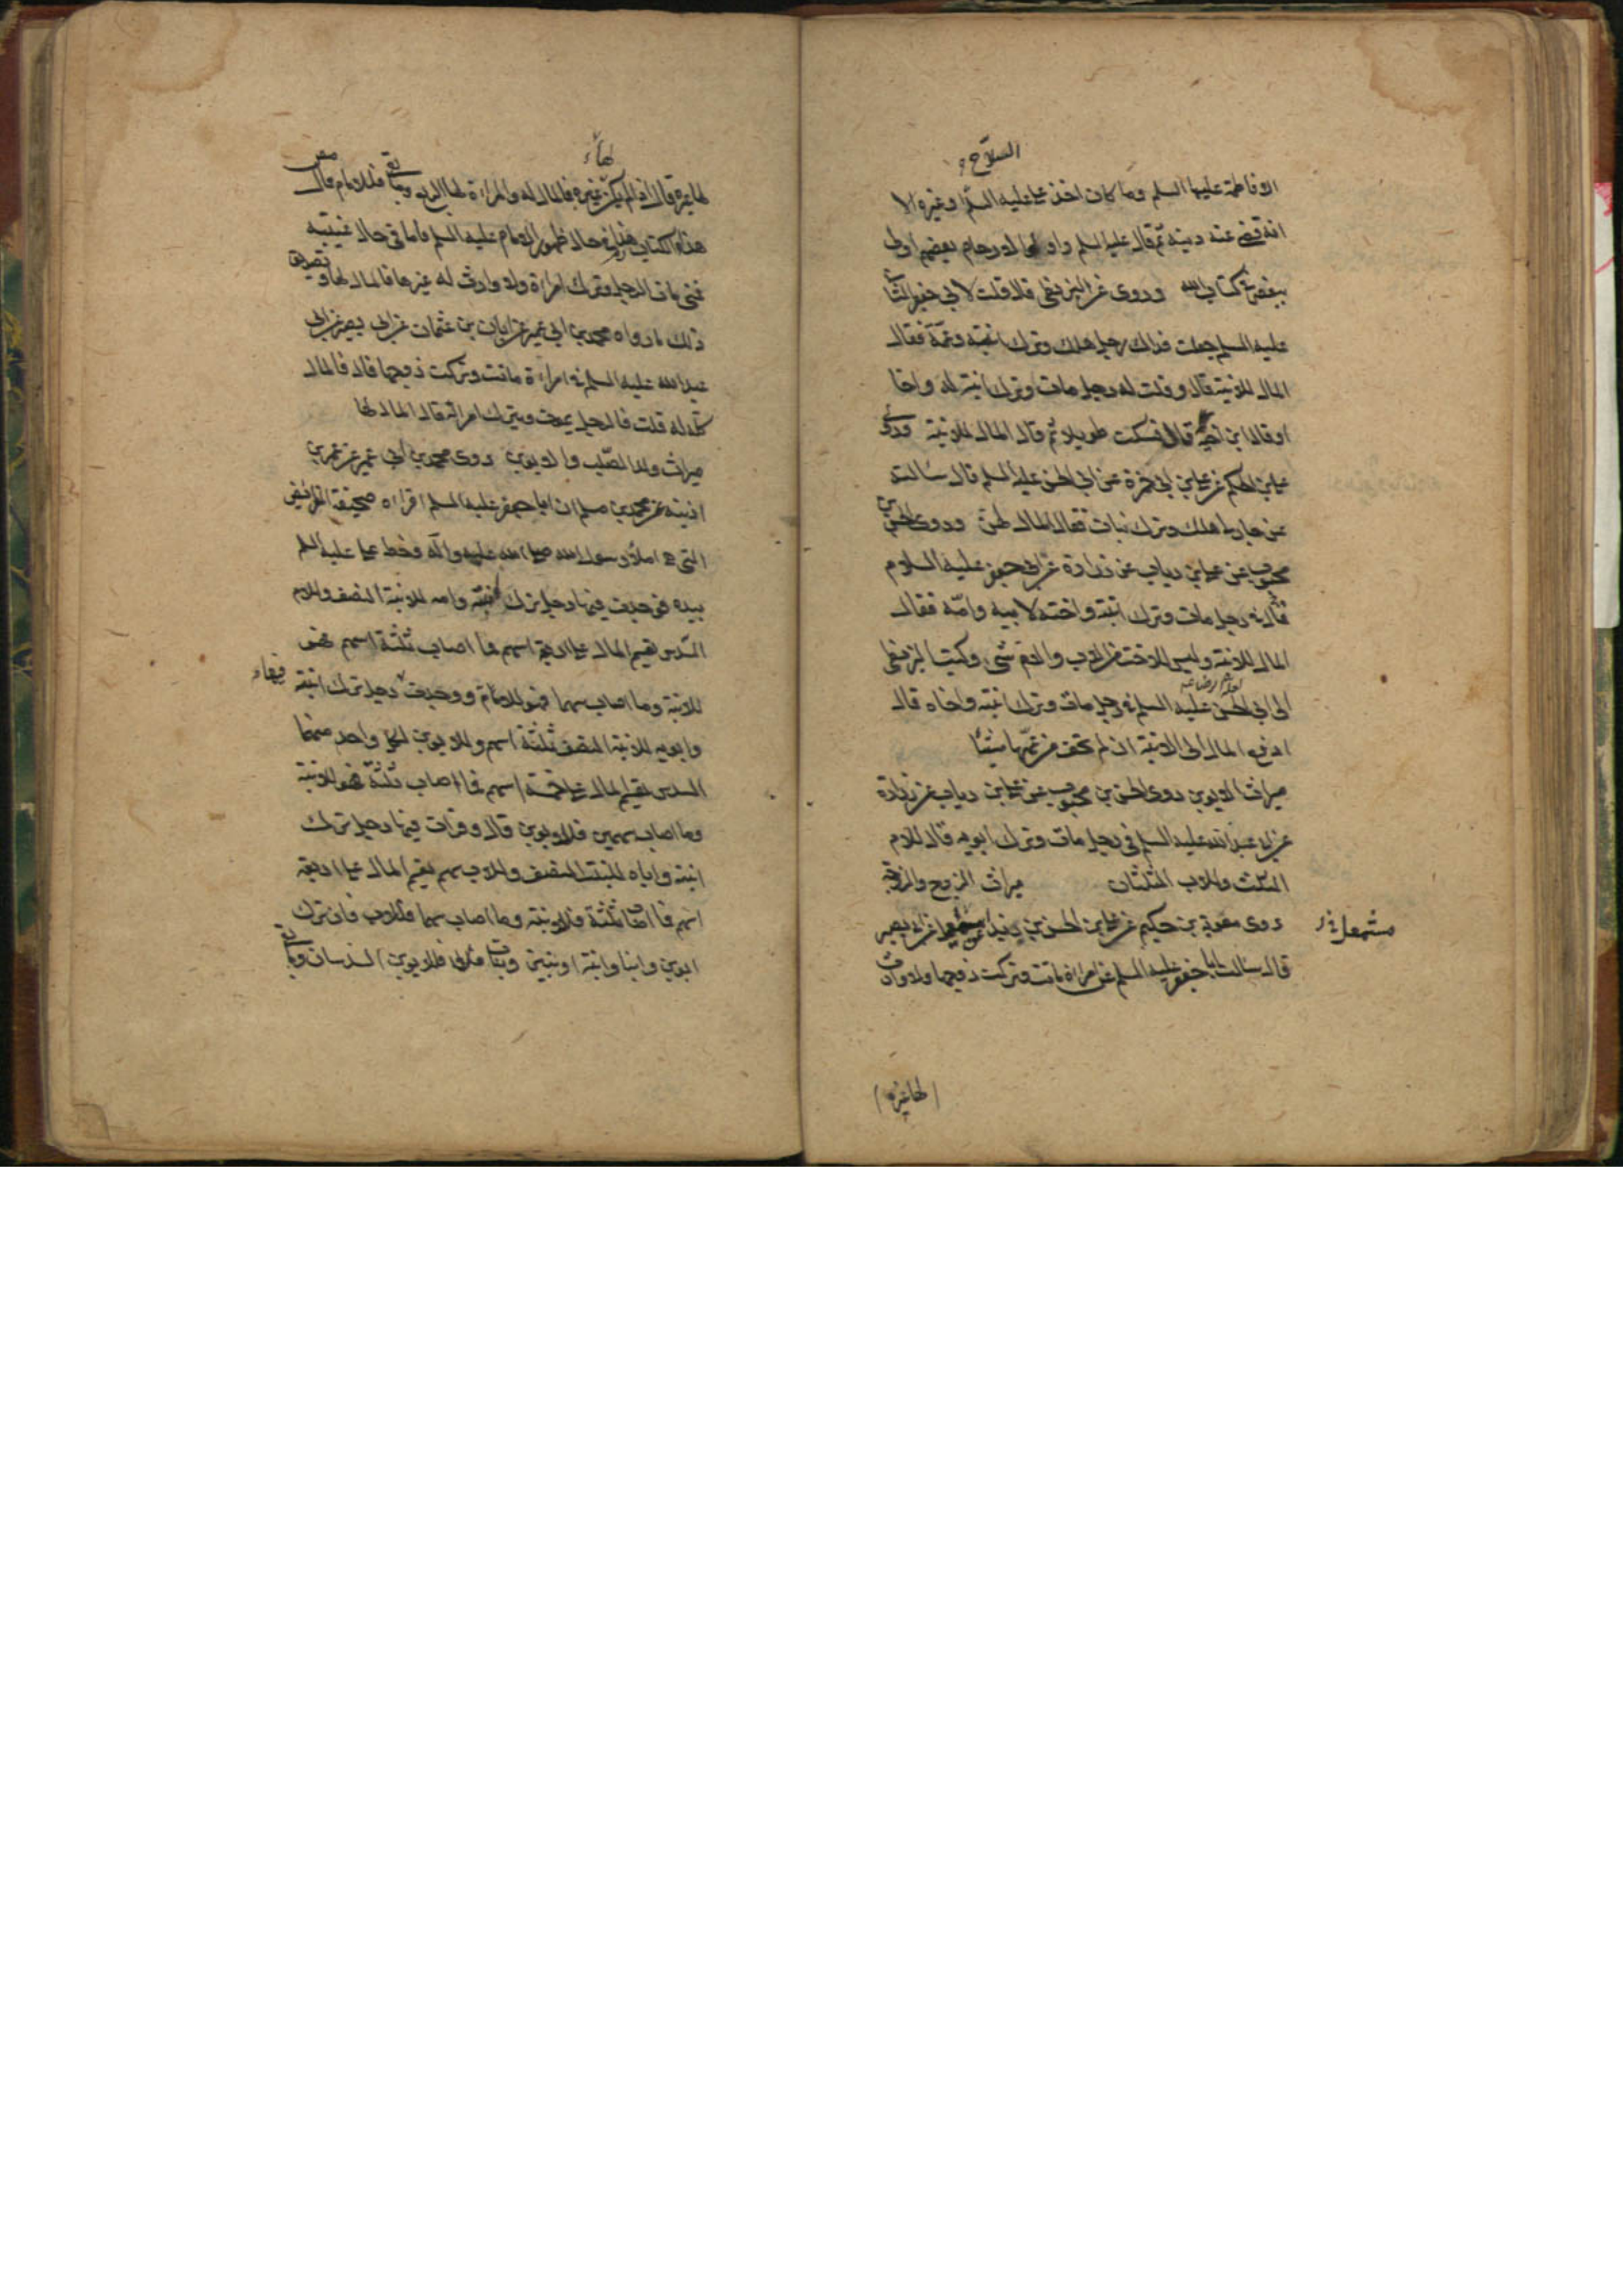 السلاح
الا فاطمة عليها السلم وما كان اخذ علي عليه السلم وغيره الا
انه قضى عنه دينه ثم قال عليه السلم واولوا الارحام بعضهم اولى
ببعض في كتاب الله وروى عن البزنطي قال قلت لابي جعفر الثاني
عليه السلم جعلت فداك رجل هلك وترك ابنته وعمة فقال
المال للابنة قال وقلت له رجل مات وترك ابنة له واخا
او قال ابن اخيه قال فسكت طويلا ثم قال المال للابنة وروى
علي بن الحكم عن علي بن ابي حمزة عن ابي الحسن عليه السلم قال سالته
عن جار لي هلك وترك بنات فقال المال لهن وروى الحسن بن
محبوب عن علي بن رياب عن زرارة عن ابي جعفر عليه السلام
قال في رجل مات وترك ابنته واخته لابيه وامّه فقال
المال للابنة وليس للاخت من الاب والام شئ وكتب البزنطي
الى ابي الحسن عليه السلم في رجل مات وترك ابنته واخاه قال
ادفع المال الى الابنة ان لم تخف من عمّها شيئا
ميراث الابوين روى الحسن بن محبوب عن علي بن رياب عن زرارة
عن ابي عبد الله عليه السلم في رجل مات وترك ابويه قال للام
الثلث وللاب الثلثان ميراث الزوج والزوجة
روى معوية بن حكيم عن علي بن الحسن بن عن ابي بصير
مشمعل
قال سالت ابا جعفر عليه السلم عن امراة ماتت وتركت زوجها ولا وارث
لها غيره
لها
لها غيره قال اذا لم يكن غيره فالمال له والمراة لها الربع وما بقى فللامام قال مص
هذا الكتاب هذا في حال ظهور الامام عليه السلم فاما في حال غيبته
فمتى مات الرجل وترك امراة ولا وارث له غيرها فالمال لها وتصديق
ذلك ما رواه محمد بن ابي عمير عن ابان بن عثمان عن ابي بصير عن ابي
عبد الله عليه السلم في امراة ماتت وتركت زوجها قال فالمال
كله له قلت فالرجل يموت ويترك امراته قال المال لها
ميراث ولد الصلب والابوين روى محمد بن ابي عمير عن عمر بن
اذينة عن محمد بن مسلم ان ابا جعفر عليه السلم اقراه صحيفة الفرائض
التي هي املاء رسول الله صلى الله عليه وآله وخط علي عليه السلم
بيده فوجدت فيها رجل ترك ابنته وامه للابنة النصف وللام
السدس يقسم المال على اربعة اسهم فما اصاب ثلثة اسهم فهو
للابنة وما اصاب سهما فهو للام ووجدت رجل ترك ابنته
فيها
وابويه للابنة النصف ثلثة اسهم وللابوين لكل واحد منهما
السدس يقسم المال على خمسة اسهم فما اصاب ثلثة فهو للابنة
وما اصاب سهمين فللابوين قال وقرات فيها رجل ترك
ابنته واباه للبنت النصف وللاب سهم يقسم المال على اربعة
اسهم فما اصاب ثلثة فللابنة وما اصاب سهما فللاب فان ترك
ابوين وابنا وابنة او بنين وبنات فللابوين السدسان وما بقي